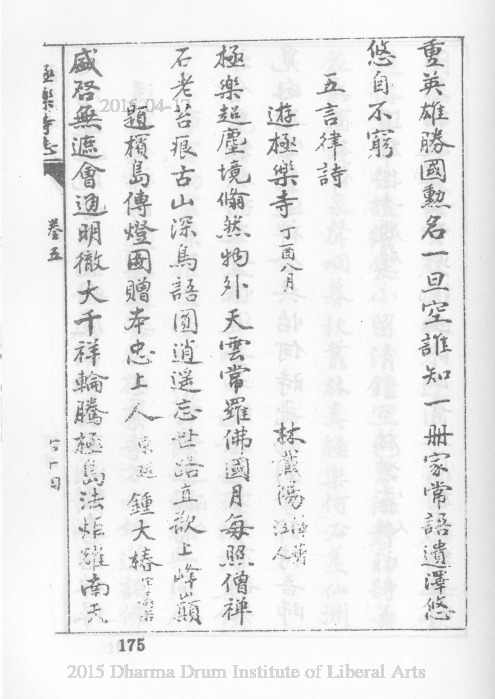 重英雄勝國勳名一旦空誰知一冊家常語遺澤悠
悠自不窮
五言律詩
遊極樂寺 丁酉八月 林
極樂超塵境翛然物外天雲常羅佛國月每照僧禪
石老苔痕古山深鳥語圓逍遥忘世路直欲上峰巔
題檳島傳燈圖贈本忠上人 鍾大椿
盛啓無遮會通明徹大千祥輪騰極島法炬耀南天
極樂寺志
卷五
175
2015-04-17
2015 Dharma Drum Institute of Liberal Arts